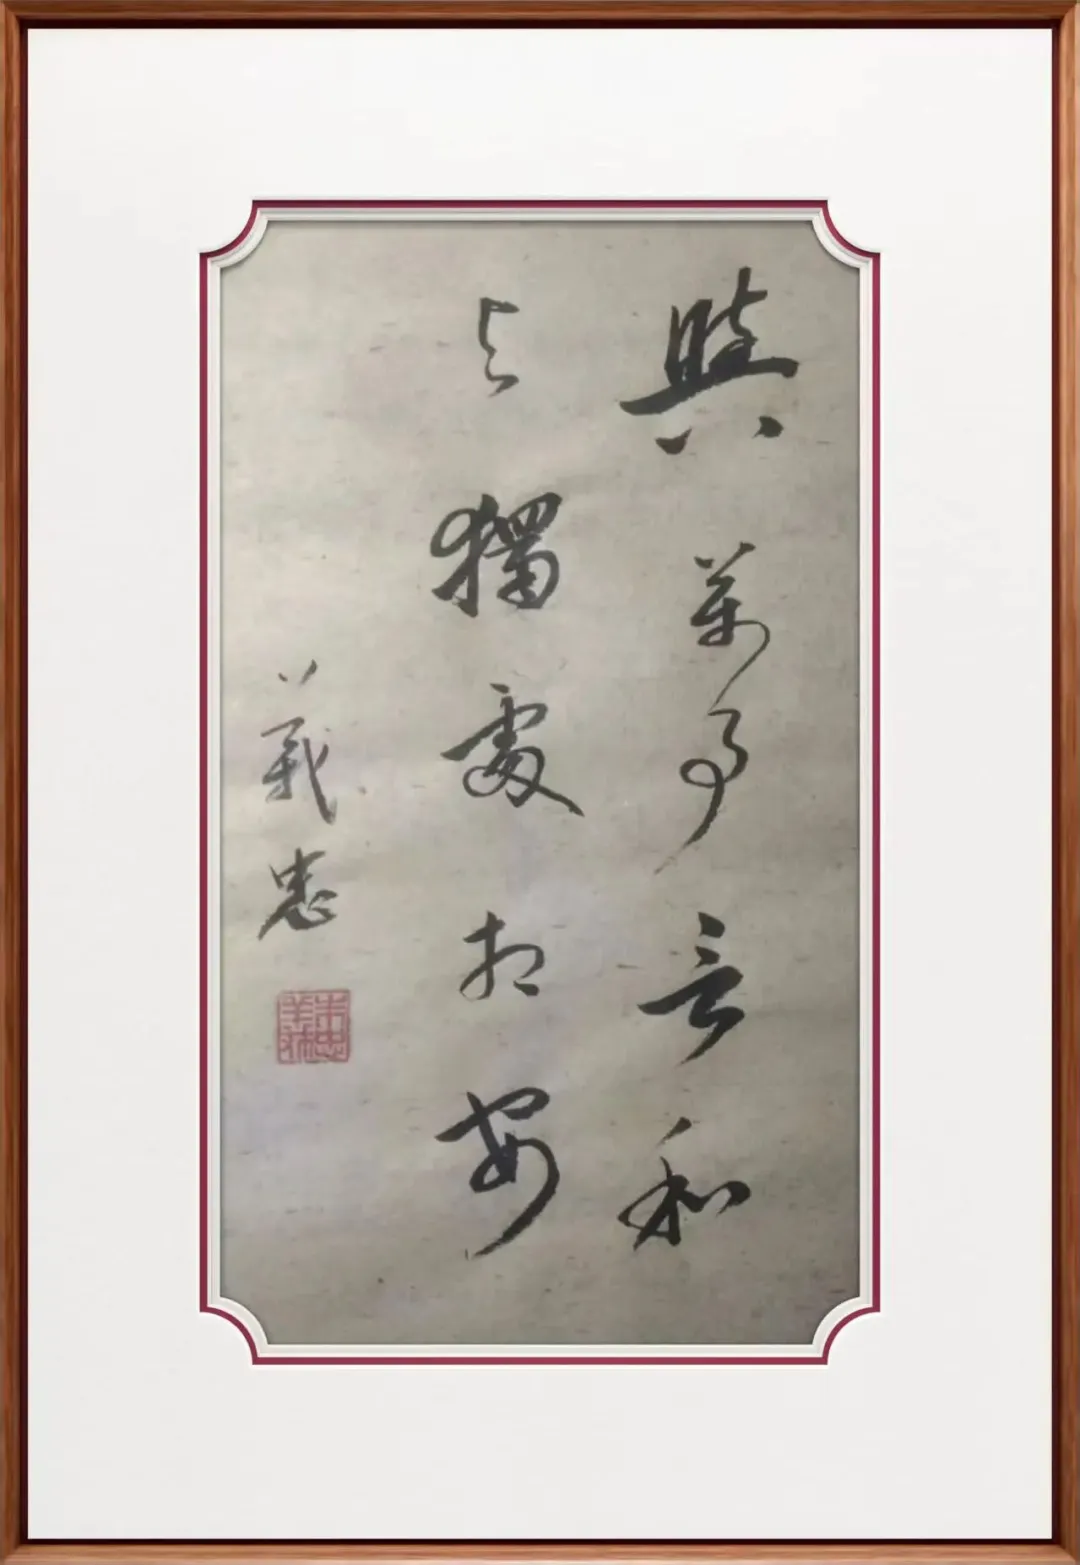 與萬事言和
与獨處相安
義忠